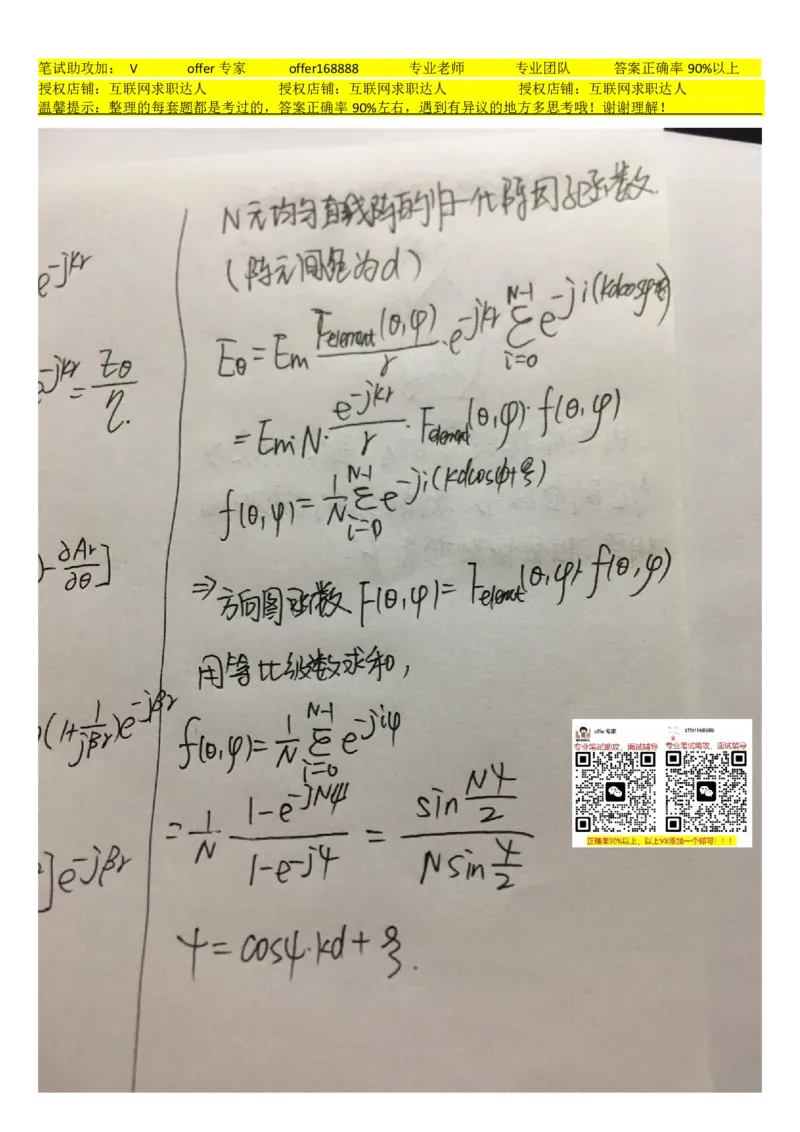 笔试助攻加： V offer 专家 offer168888 专业老师 专业团队 答案正确率 90%以上
授权店铺：互联网求职达人 授权店铺：互联网求职达人 授权店铺：互联网求职达人
温馨提示：整理的每套题都是考过的，答案正确率 90%左右，遇到有异议的地方多思考哦！谢谢理解！
e^{-jkr}
e^{-jkr} = E_θ/η.
∂A_r/∂θ]
(1+1/(jβr))e^{-jβr}
]e^{-jβr}
N元均匀直线阵的归一化阵因子函数.
(阵元间距为d)
E_θ = E_m F_{element}(θ,φ)/r · e^{-jkr} Σ_{i=0}^{N-1} e^{-ji(kdcosφ+ξ)}
= E_m · N · e^{-jkr}/r · F_{element}(θ,φ) · f(θ,φ)
f(θ,φ) = 1/N Σ_{i=0}^{N-1} e^{-ji(kdcosφ+ξ)}
⇒ 方向图函数 F(θ,φ) = F_{element}(θ,φ) · f(θ,φ)
用等比级数求和，
f(θ,φ) = 1/N Σ_{i=0}^{N-1} e^{-jiψ}
= 1/N (1-e^{-jNψ})/(1-e^{-jψ}) = sin(Nψ/2)/(N sin(ψ/2))
ψ = cosφ·kd + ξ.
offer专家 offer168888
专业笔试助攻、面试辅导 专业笔试助攻、面试辅导
正确率90%以上，以上VX添加一个即可！！！